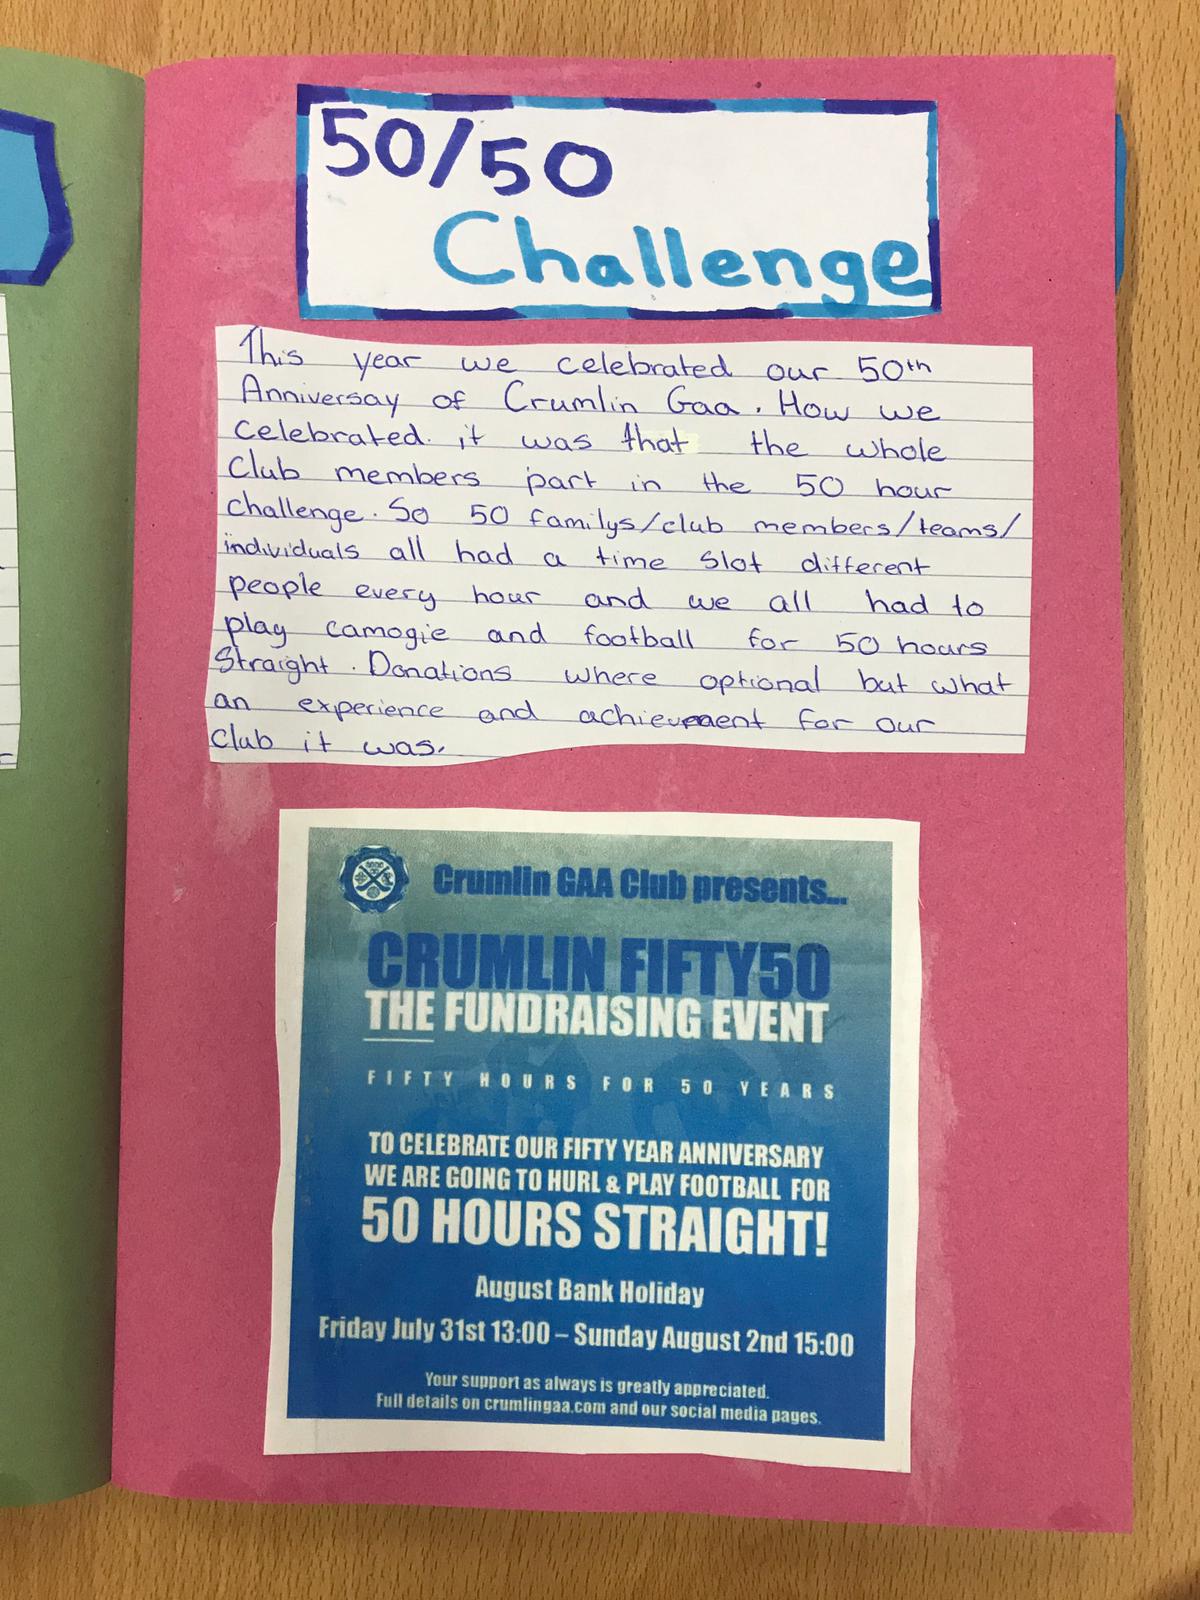 50/50
Challenge
This year we celebrated our 50th
Anniversay of Crumlin Gaa. How we
celebrated. it was that the whole
Club members part in the 50 hour
challenge. So 50 familys/club members/teams/
individuals all had a time slot different
people every hour and we all had to
play camogie and football for 50 hours
Straight. Donations where optional but what
an experience and achievement for our
Club it was.
Crumlin GAA Club presents...
CRUMLIN FIFTY50
THE FUNDRAISING EVENT
FIFTY HOURS FOR 50 YEARS
TO CELEBRATE OUR FIFTY YEAR ANNIVERSARY
WE ARE GOING TO HURL & PLAY FOOTBALL FOR
50 HOURS STRAIGHT!
August Bank Holiday
Friday July 31st 13:00 – Sunday August 2nd 15:00
Your support as always is greatly appreciated.
Full details on crumlingaa.com and our social media pages.